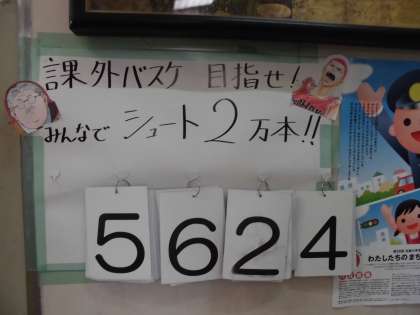 課外バスケ 目指せ!
みんなで シュート2万本!!
5624
わたしたちのまち